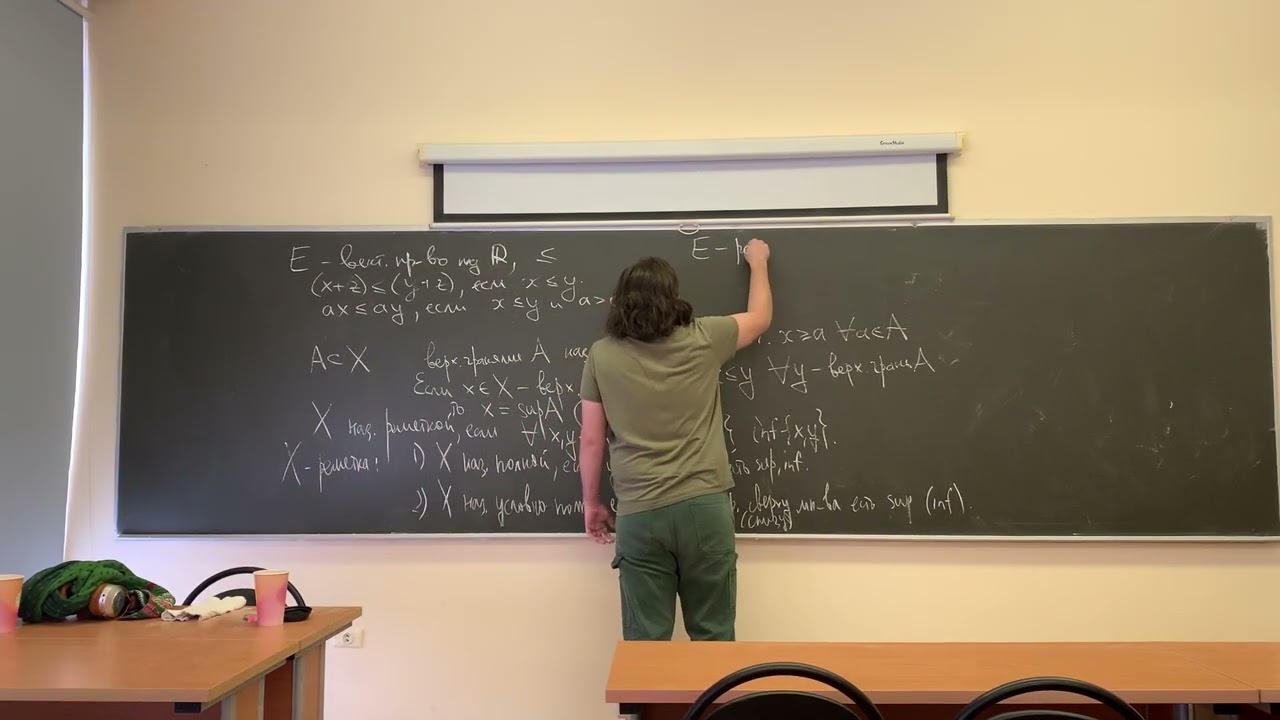 E – вект. пр-во над ℝ, ≤
(x+z) ≤ (y+z), если x ≤ y.
ax ≤ ay, если x ≤ y и a >
E – р
A ⊂ X верх. гранями A наз x ≥ a ∀a∈A
Если x ∈ X – верх. ≤ y ∀y – верх. грани A
то x = sup A (
X наз. решеткой, если ∀ x,y } inf{x,y}.
X – решетка: 1) X наз. полной, если sup, inf.
2) X наз. условно пол сверху мн-ва есть sup (inf).
(снизу)